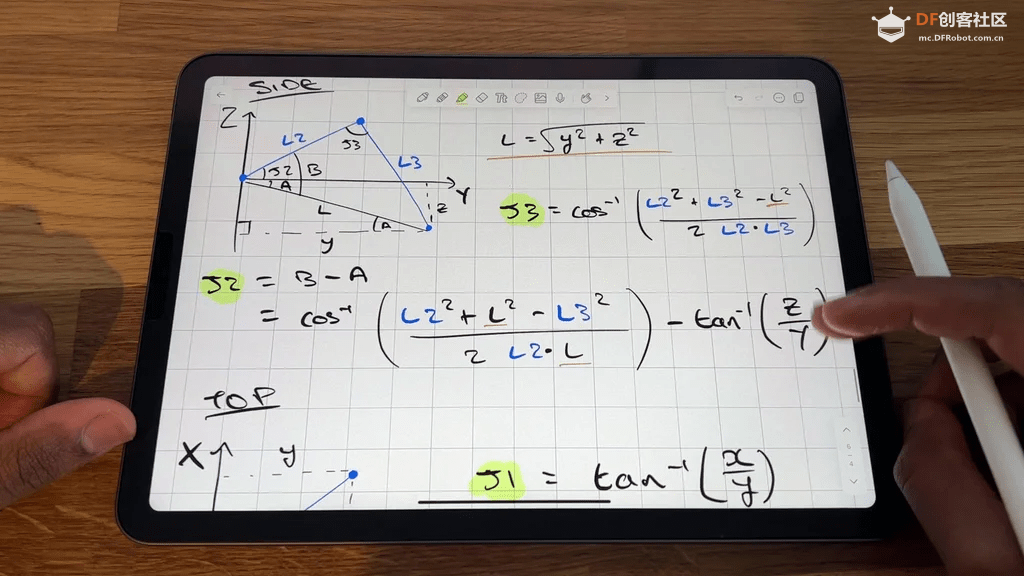 DF创客社区
mc.DFRobot.com.cn
SIDE
Z
L2
J3
J2
B
A
L3
Y
L
z
A
y
L = √(y² + z²)
J3 = cos⁻¹ ((L2² + L3² - L²) / (2 L2·L3))
J2 = B - A
= cos⁻¹ ((L2² + L² - L3²) / (2 L2·L)) - tan⁻¹ (z/y)
TOP
X
y
J1 = tan⁻¹ (x/y)